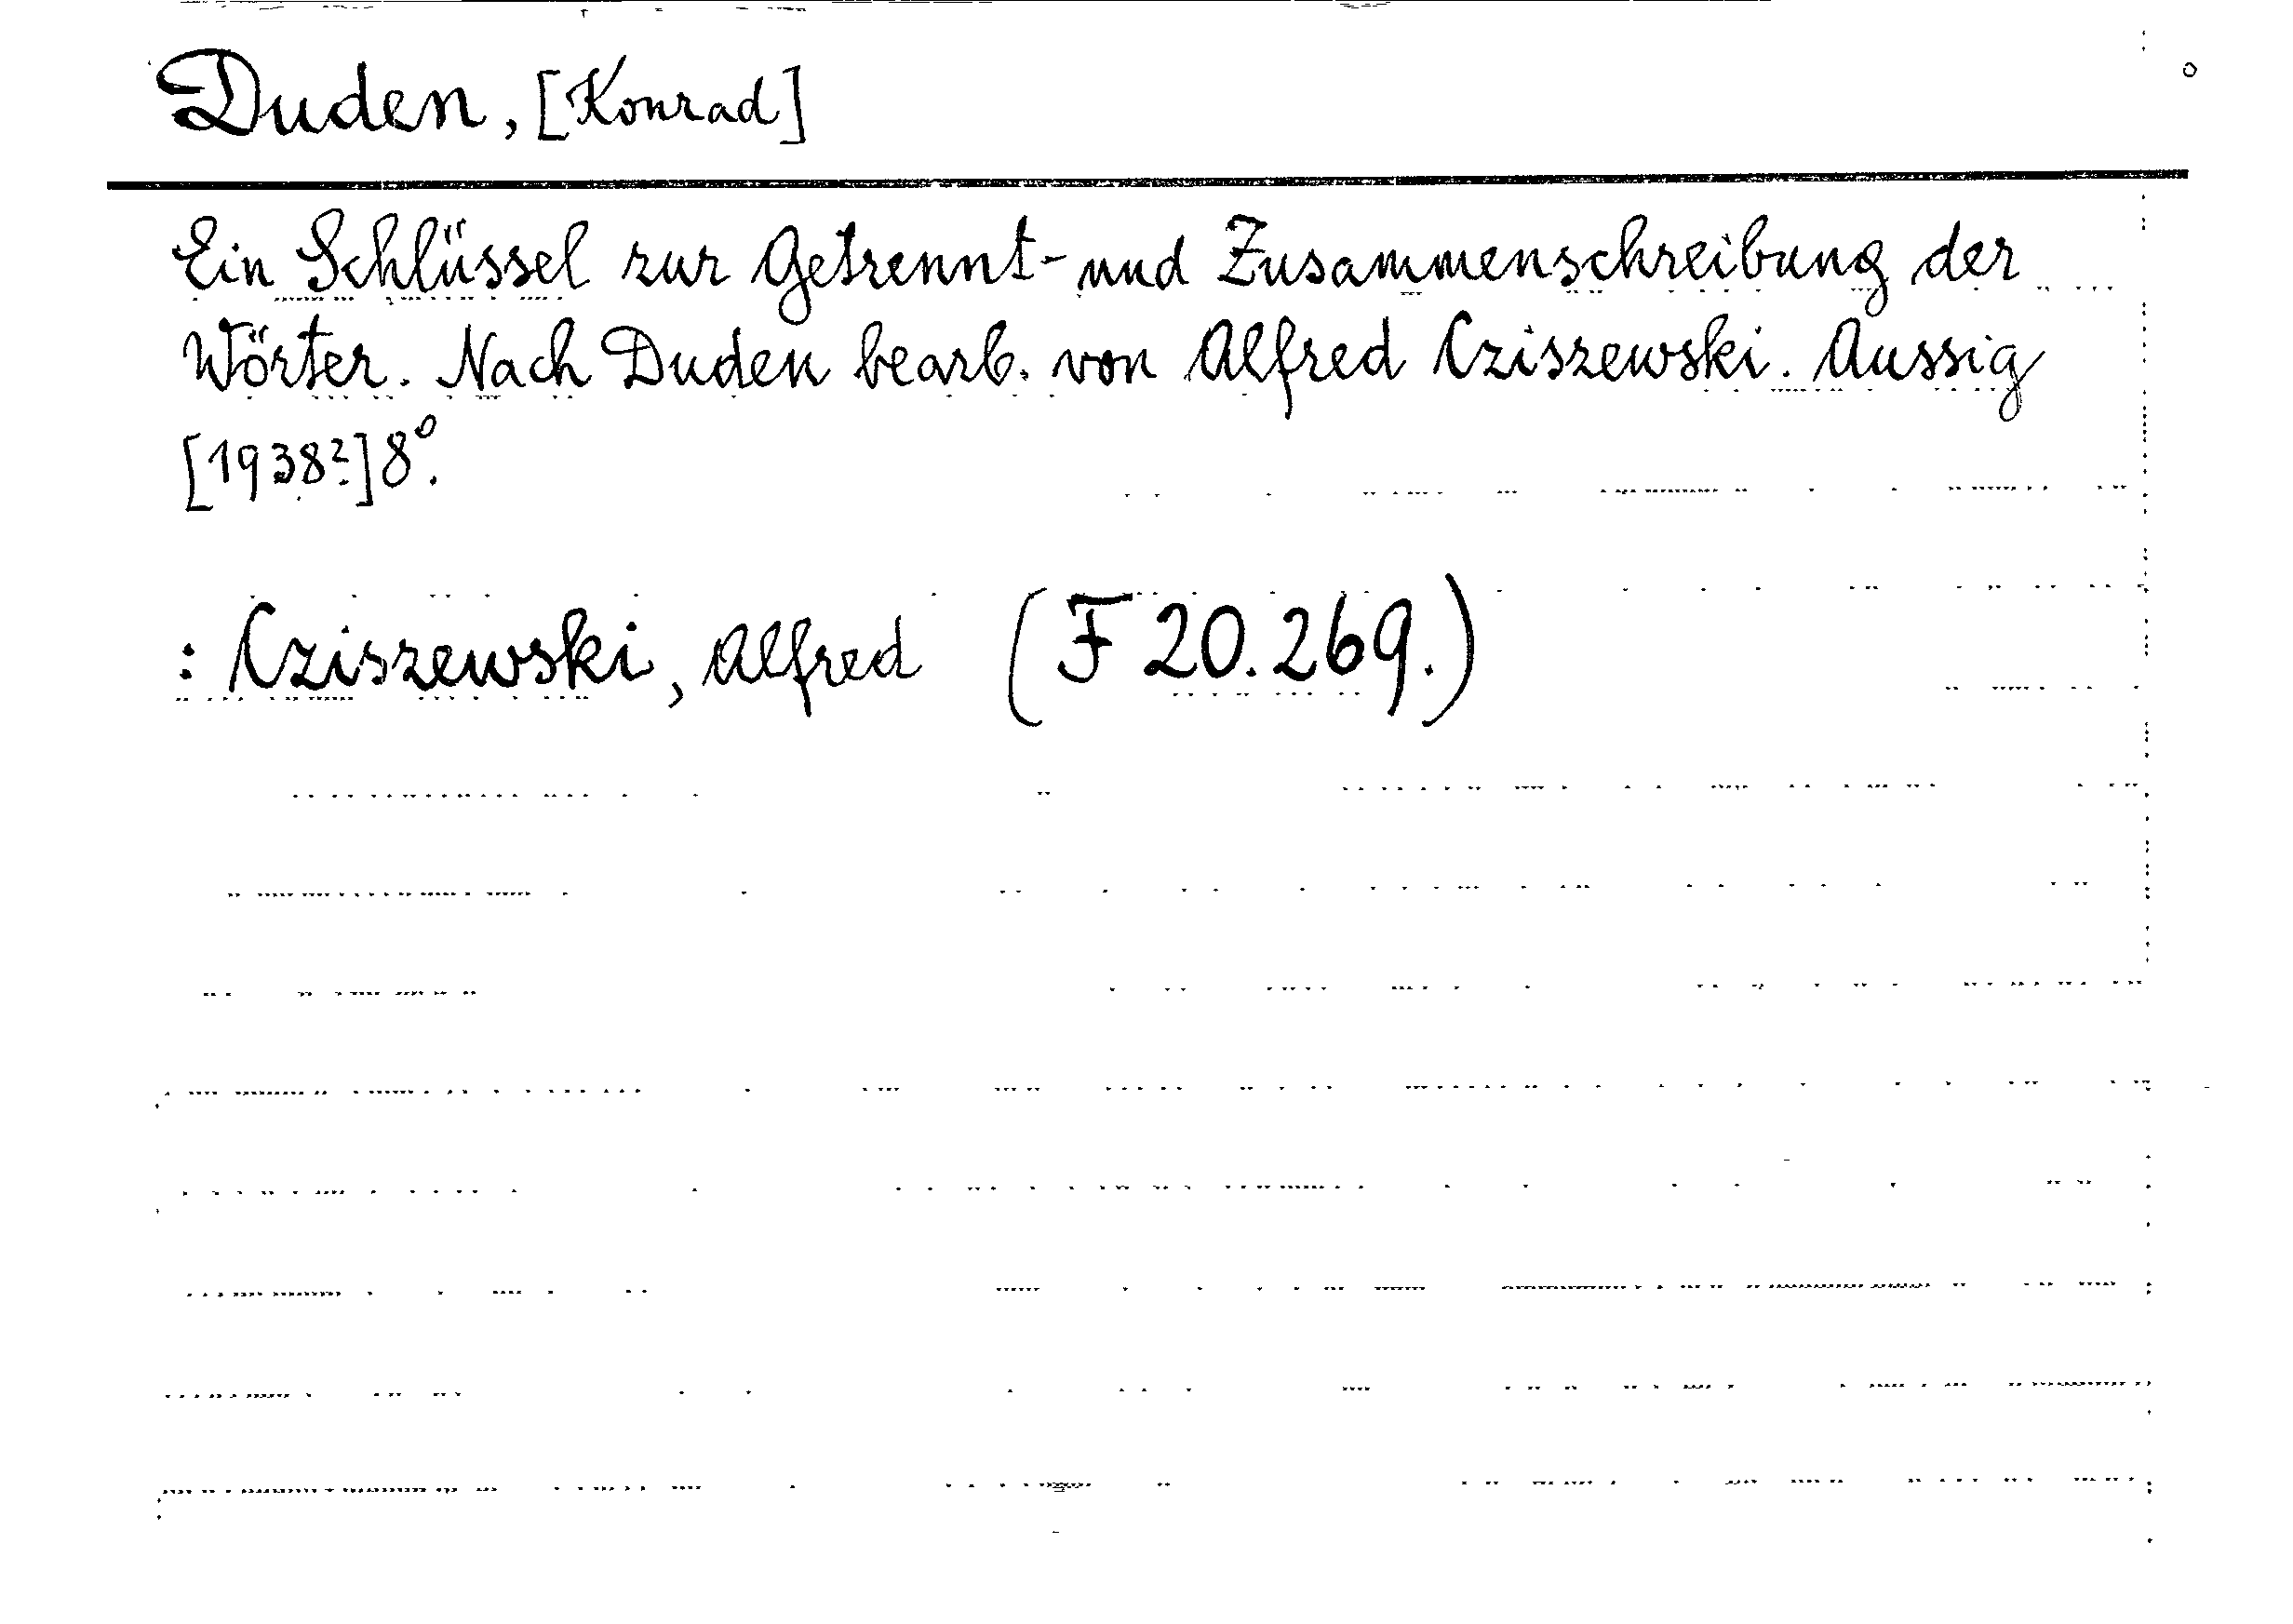 Duden, [Konrad]
Ein Schlüssel zur Getrennt- und Zusammenschreibung der
Wörter. Nach Duden bearb. von Alfred Cziszewski. Aussig
[1938?] 8°.
: Cziszewski, Alfred (F 20.269.)